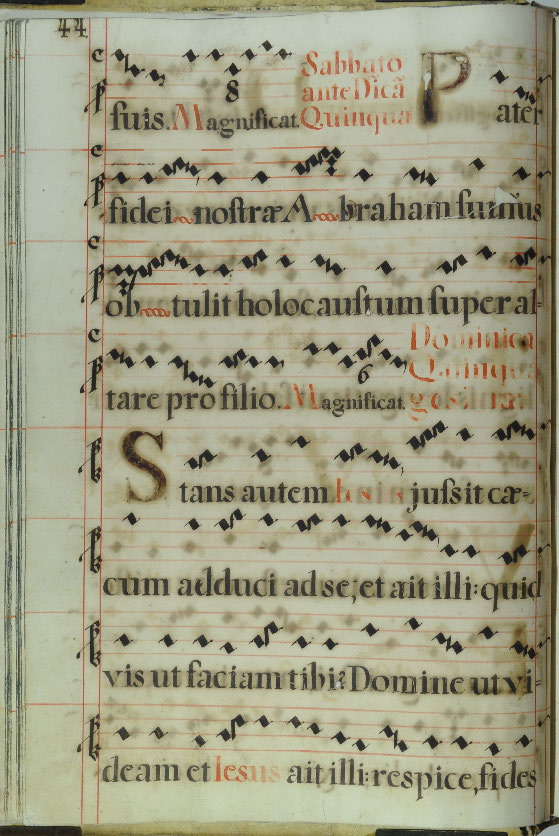 44
fuis. Magnificat. 8 Sabbato ante Dicã Quinqua Pater
fidei nostræ Abraham sum̃us
obtulit holocaustum super al-
tare pro filio. Magnificat. 6 Dominica Quinqua
Stans autem Iesus jussit cæ-
cum adduci ad se; et ait illi: quid
vis ut faciam tibi? Domine ut vi-
deam et Iesus ait illi: respice, fides